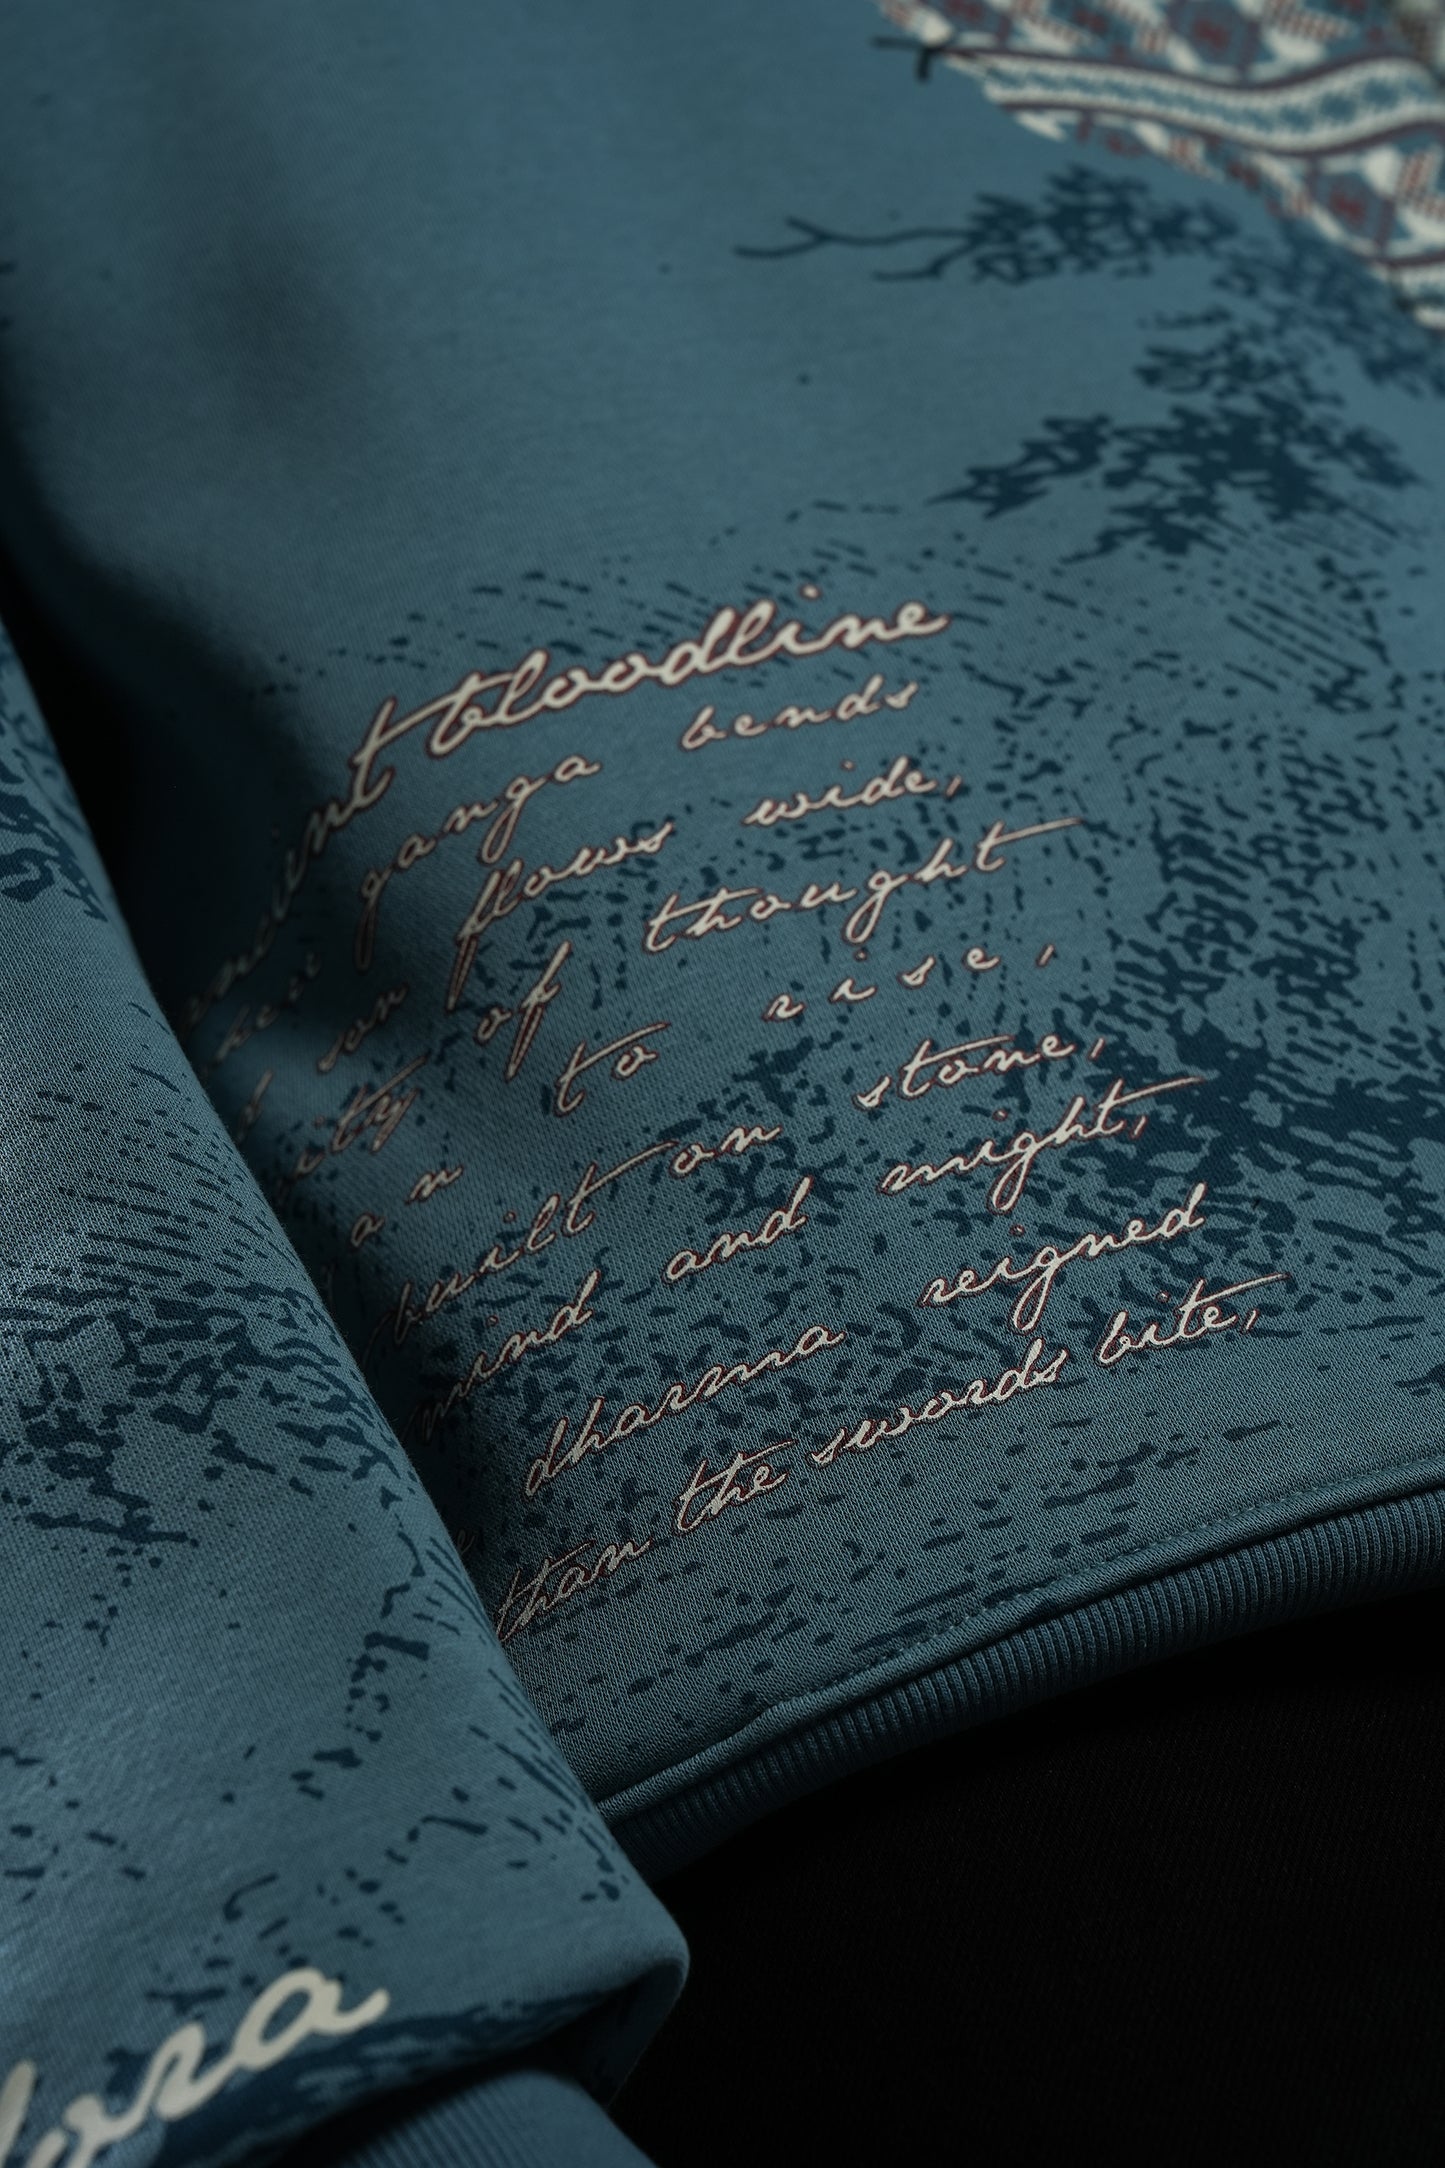 bloodline
ganga bends
flows wide,
of thought
to rise,
built on stone,
mind and might,
dharma reigned
than the swords bite,